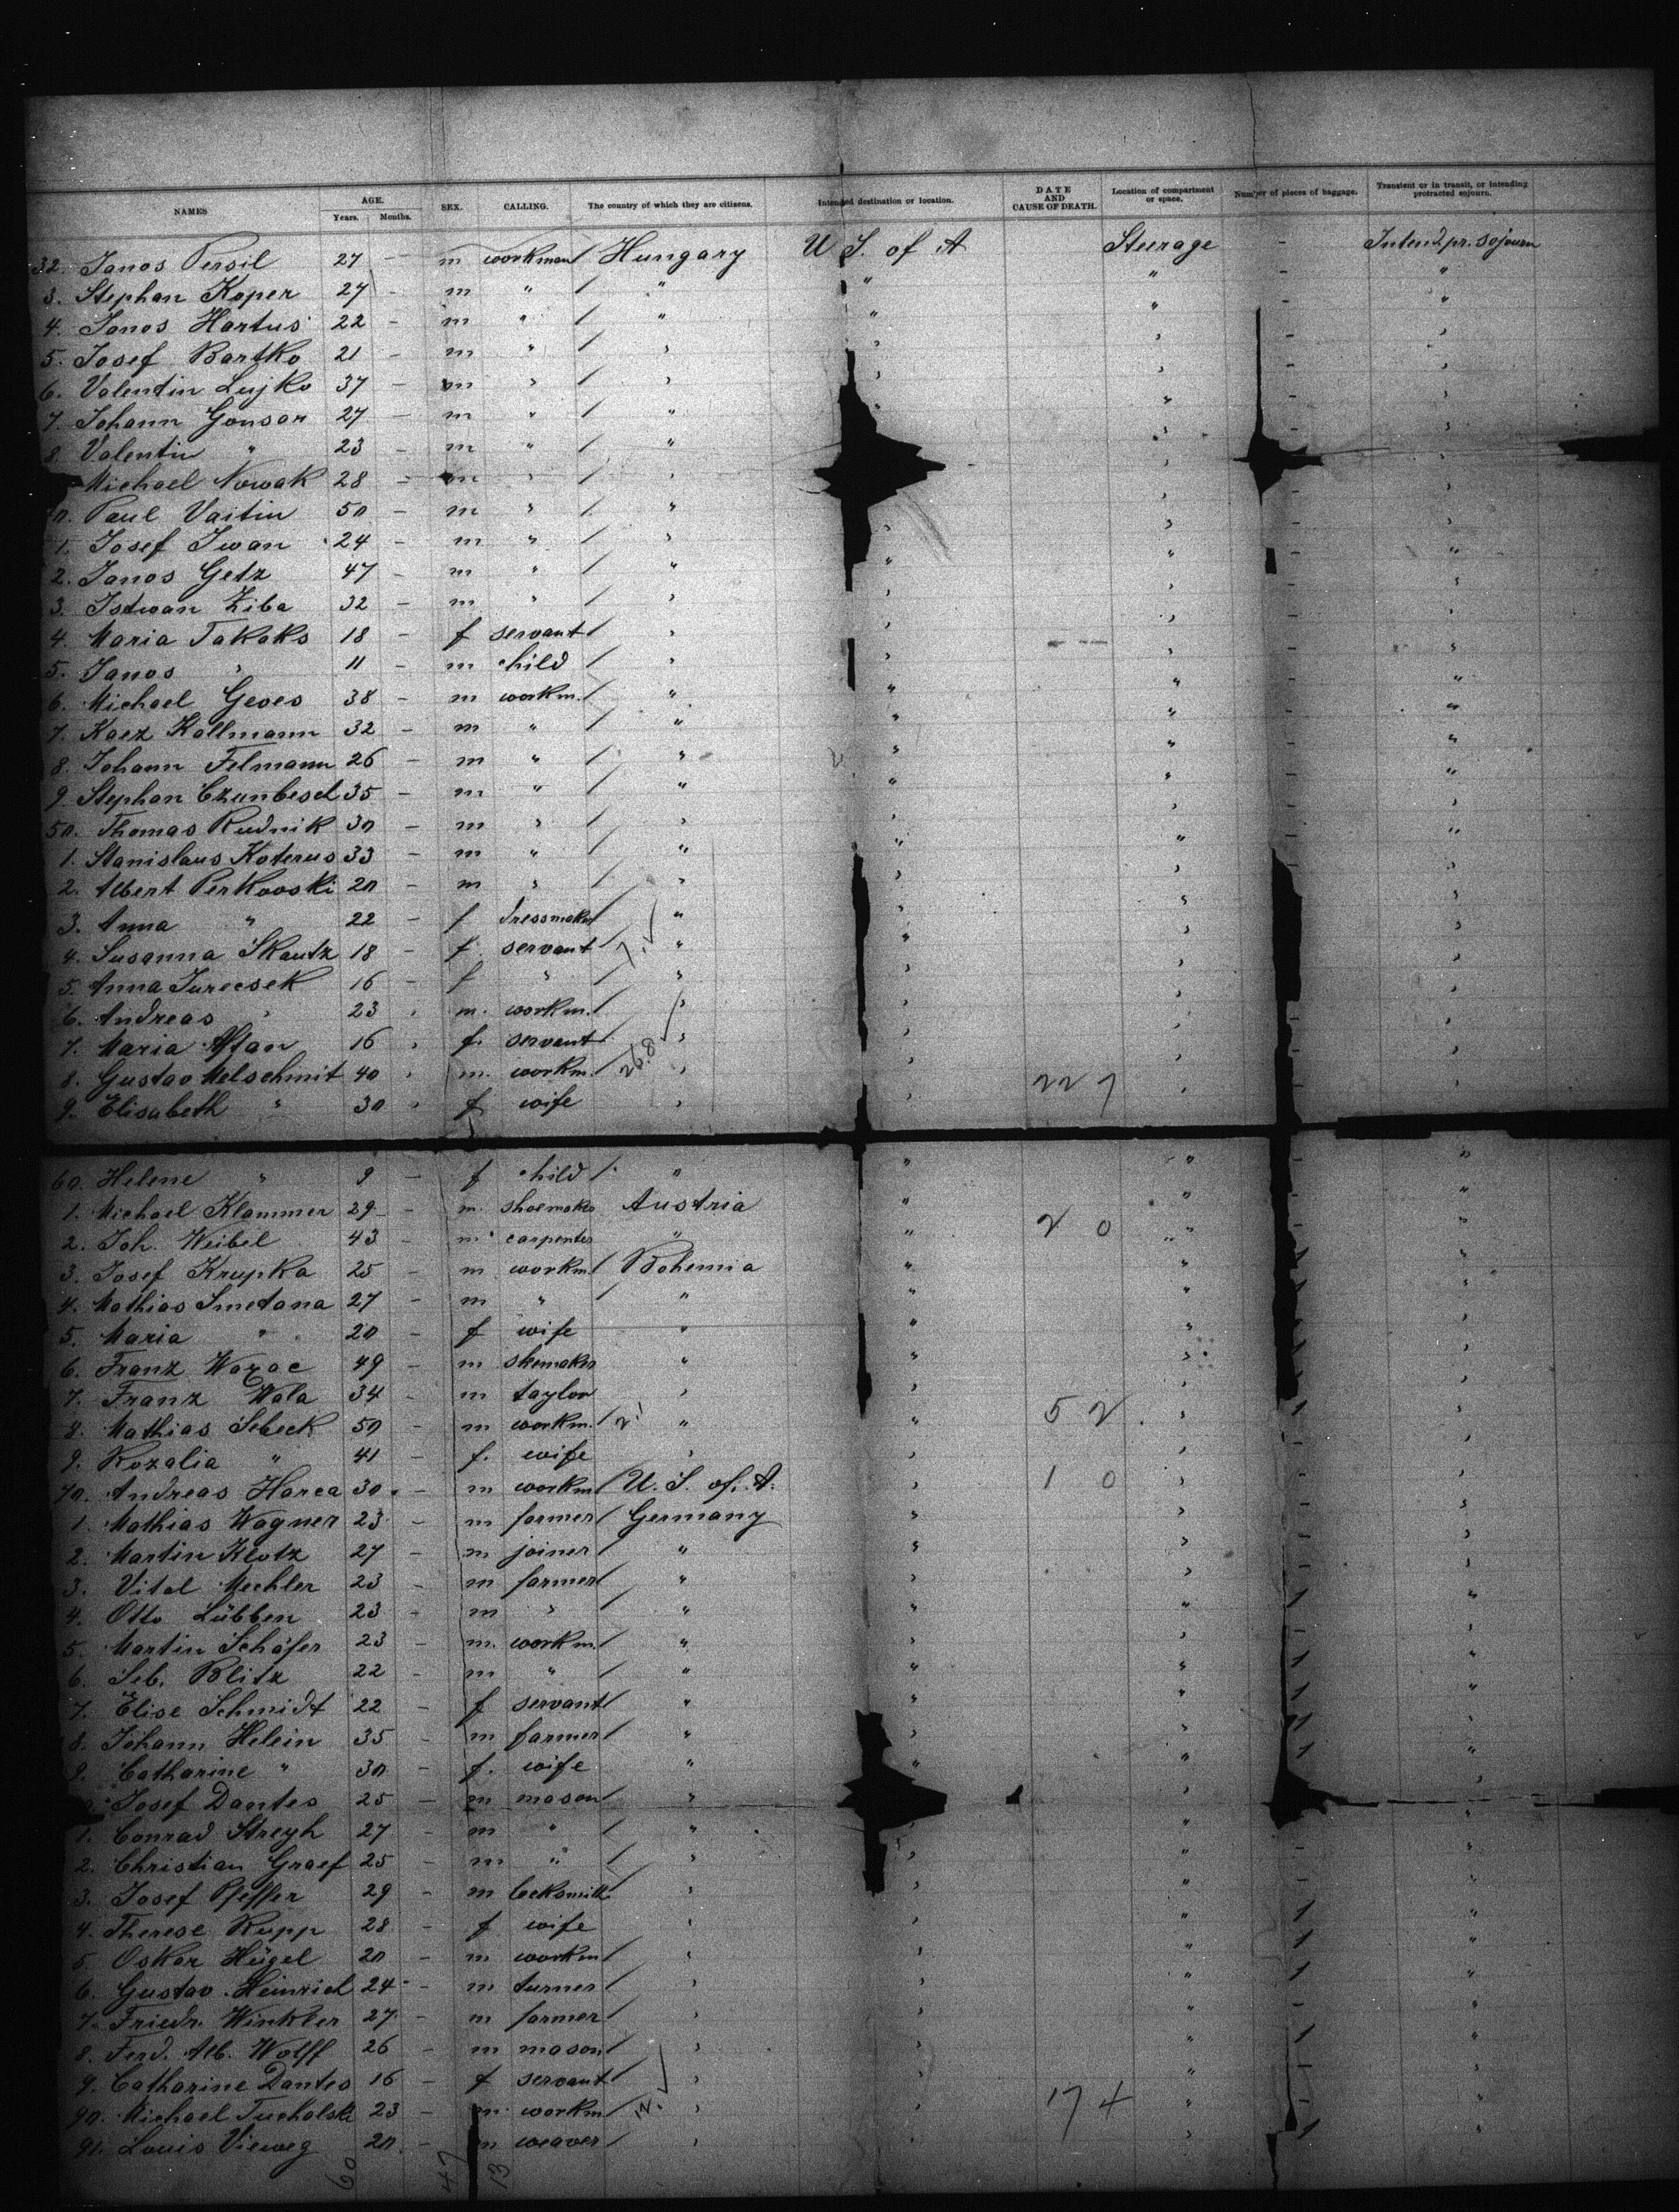 NAMES AGE. Years. Months. SEX. CALLING. The country of which they are citizens. Intended destination or location. DATE AND CAUSE OF DEATH. Location of compartment or space. Number of pieces of baggage. Transient or in transit, or intending protracted sojourn.
32. Janos Persil 27 - m workman / Hungary U S. of A Steerage - Intend. pr. sojourn
3. Stephan Koper 27 - m " / " " " - "
4. Janos Hartus 22 - m " / " " " - "
5. Josef Bartko 21 - m " / " " " - "
6. Valentin Lujko 37 - m " / " " " - "
7. Johann Gonsor 27 - m " / " " " - "
8. Valentin " 23 - m " / " " - "
Michael Nowak 28 - m " / " " - "
0. Paul Vaitin 50 - m " / " " - "
1. Josef Iwan 24 - m " / " " " - "
2. Janos Getz 47 - m " / " " " - "
3. Istwan Ziba 32 - m " / " " " - "
4. Maria Takaks 18 - f servant / " " " - "
5. Janos " 11 - m child / " " " - "
6. Michael Geves 38 - m workm. / " " " - "
7. Kaez Kallmann 32 - m " / " " " - "
8. Johann Felmann 26 - m " / " " " - "
9. Stephan Czunbesel 35 - m " / " " " - "
50. Thomas Rudnik 30 - m " / " " " - "
1. Stanislaus Koterus 33 - m " / " " " - "
2. Albert Perkowski 20 - m " / " " " "
3. Anna " 22 - f dressmaker / " " " "
4. Susanna Skautz 18 - f. servant / 7. " " " "
5. Anna Jurecsek 16 - f " / " " " "
6. Andreas " 23 m. workm. / " " " "
7. Maria 16 f. servant / " " " "
8. Gustav Melschmit 40 m. workm. / 26.8 " " 227 " "
9. Elisabeth " 30 f wife " " " "
60. Helene " 9 - f child / " " " - "
1. Michael Klammer 29 - m. shoemaker Austria " " - "
2. Joh. Weibel 43 - m carpenter " " 2 0 " "
3. Josef Krupka 25 - m workm / Bohemia " " "
4. Mathias Smetana 27 - m " / " " " "
5. Maria " 20 - f wife " " " "
6. Franz Wazac 49 - m shemaker " " " "
7. Franz Wala 34 - m taylor " " " "
8. Mathias Sebeck 50 - m workm. / 2! " " 5 2. " 1 "
9. Rozalia " 41 - f. wife " " " - "
70. Andreas Harca 30. - m workm / U. S. of. A. " 1 0 " - "
1. Mathias Wagner 23 - m farmer / Germany " " - "
2. Martin Klotz 27 - m joiner / " " " - "
3. Vital Mechler 23 - m farmer / " " " - "
4. Otto Lübben 23 - m " / " " " 1 "
5. Martin Schäfer 23 - m. workm. / " " " - "
6. Seb. Blitz 22 - m " / " " " 1 "
7. Elise Schmidt 22 - f servant / " " " 1 "
8. Johann Helein 35 - m farmer / " " " 1 "
9. Catharine " 30 - f. wife " " " 1 "
Josef Dantes 25 - m mason / " " "
1. Conrad Streyh 27 - m " / " " " "
2. Christian Graef 25 - m " / " " " - "
3. Josef Pfeffer 29 - m locksmith " " " - "
4. Therese Rupp 28 - f wife " " " 1 "
5. Oskar Hügel 20 - m workm / " " " 1 "
6. Gustav Heinrich 24 - m turner / " " " 1 "
7. Friedr. Winkler 27 - m farmer / " " - "
8. Ferd. Alb. Wolff 26 - m mason / " " " 1 "
9. Catharine Dantes 16 - f servant / " " " - "
90. Michael Tucholski 23 - m. workm / 14. " " 174 " - "
91. Louis Vieweg 20 - m weaver / " " " 1 "
60 47 13